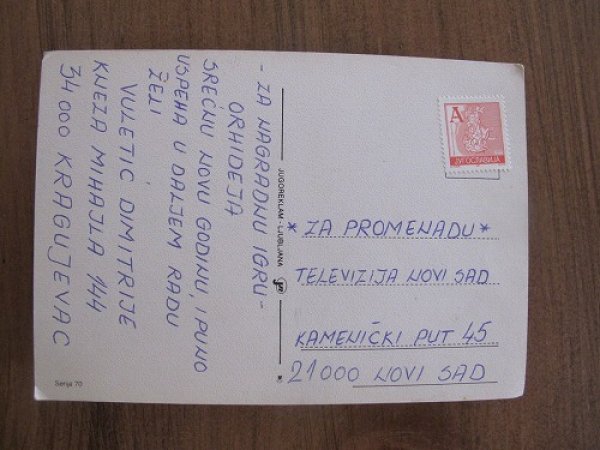 - ZA NAGRADNU IGRU -
ORHIDEJA
SREĆNU NOVU GODINU, I PUNO
USPEHA U DALJEM RADU
ŽELI
VULETIĆ DIMITRIJE
KNEZA MIHAJLA 144
34000 KRAGUJEVAC
JUGOREKLAM - LJUBLJANA
A
ЈУГОСЛАВИЈА
* ZA PROMENADU *
TELEVIZIJA NOVI SAD
KAMENIČKI PUT 45
21000 NOVI SAD
Serija 70